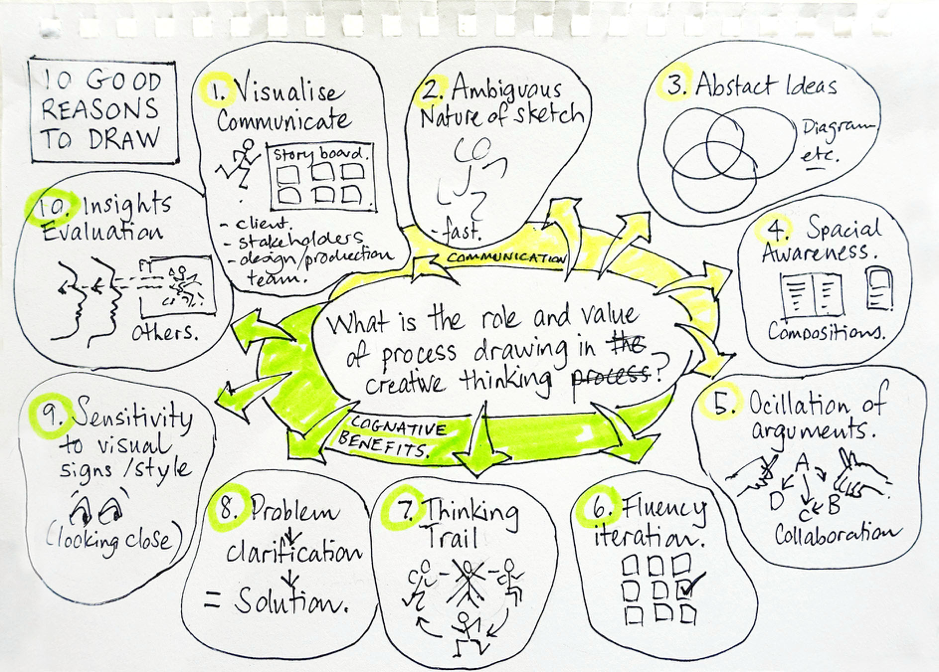 10 GOOD
REASONS
TO DRAW
1. Visualise
Communicate
Story board.
- client.
- stakeholders
- design/production
team.
2. Ambiguous
Nature of sketch
- fast.
3. Abstact Ideas
Diagram
etc.
4. Spacial
Awareness.
Compositions.
5. Ocillation of
arguments.
A
D
B
C
Collaboration
6. Fluency
iteration.
7. Thinking
Trail
8. Problem
clarification
= Solution.
9. Sensitivity
to visual
signs/style
(looking close)
10. Insights
Evaluation
Others.
COMMUNICATION
What is the role and value
of process drawing in the
creative thinking process?
COGNATIVE
BENEFITS.